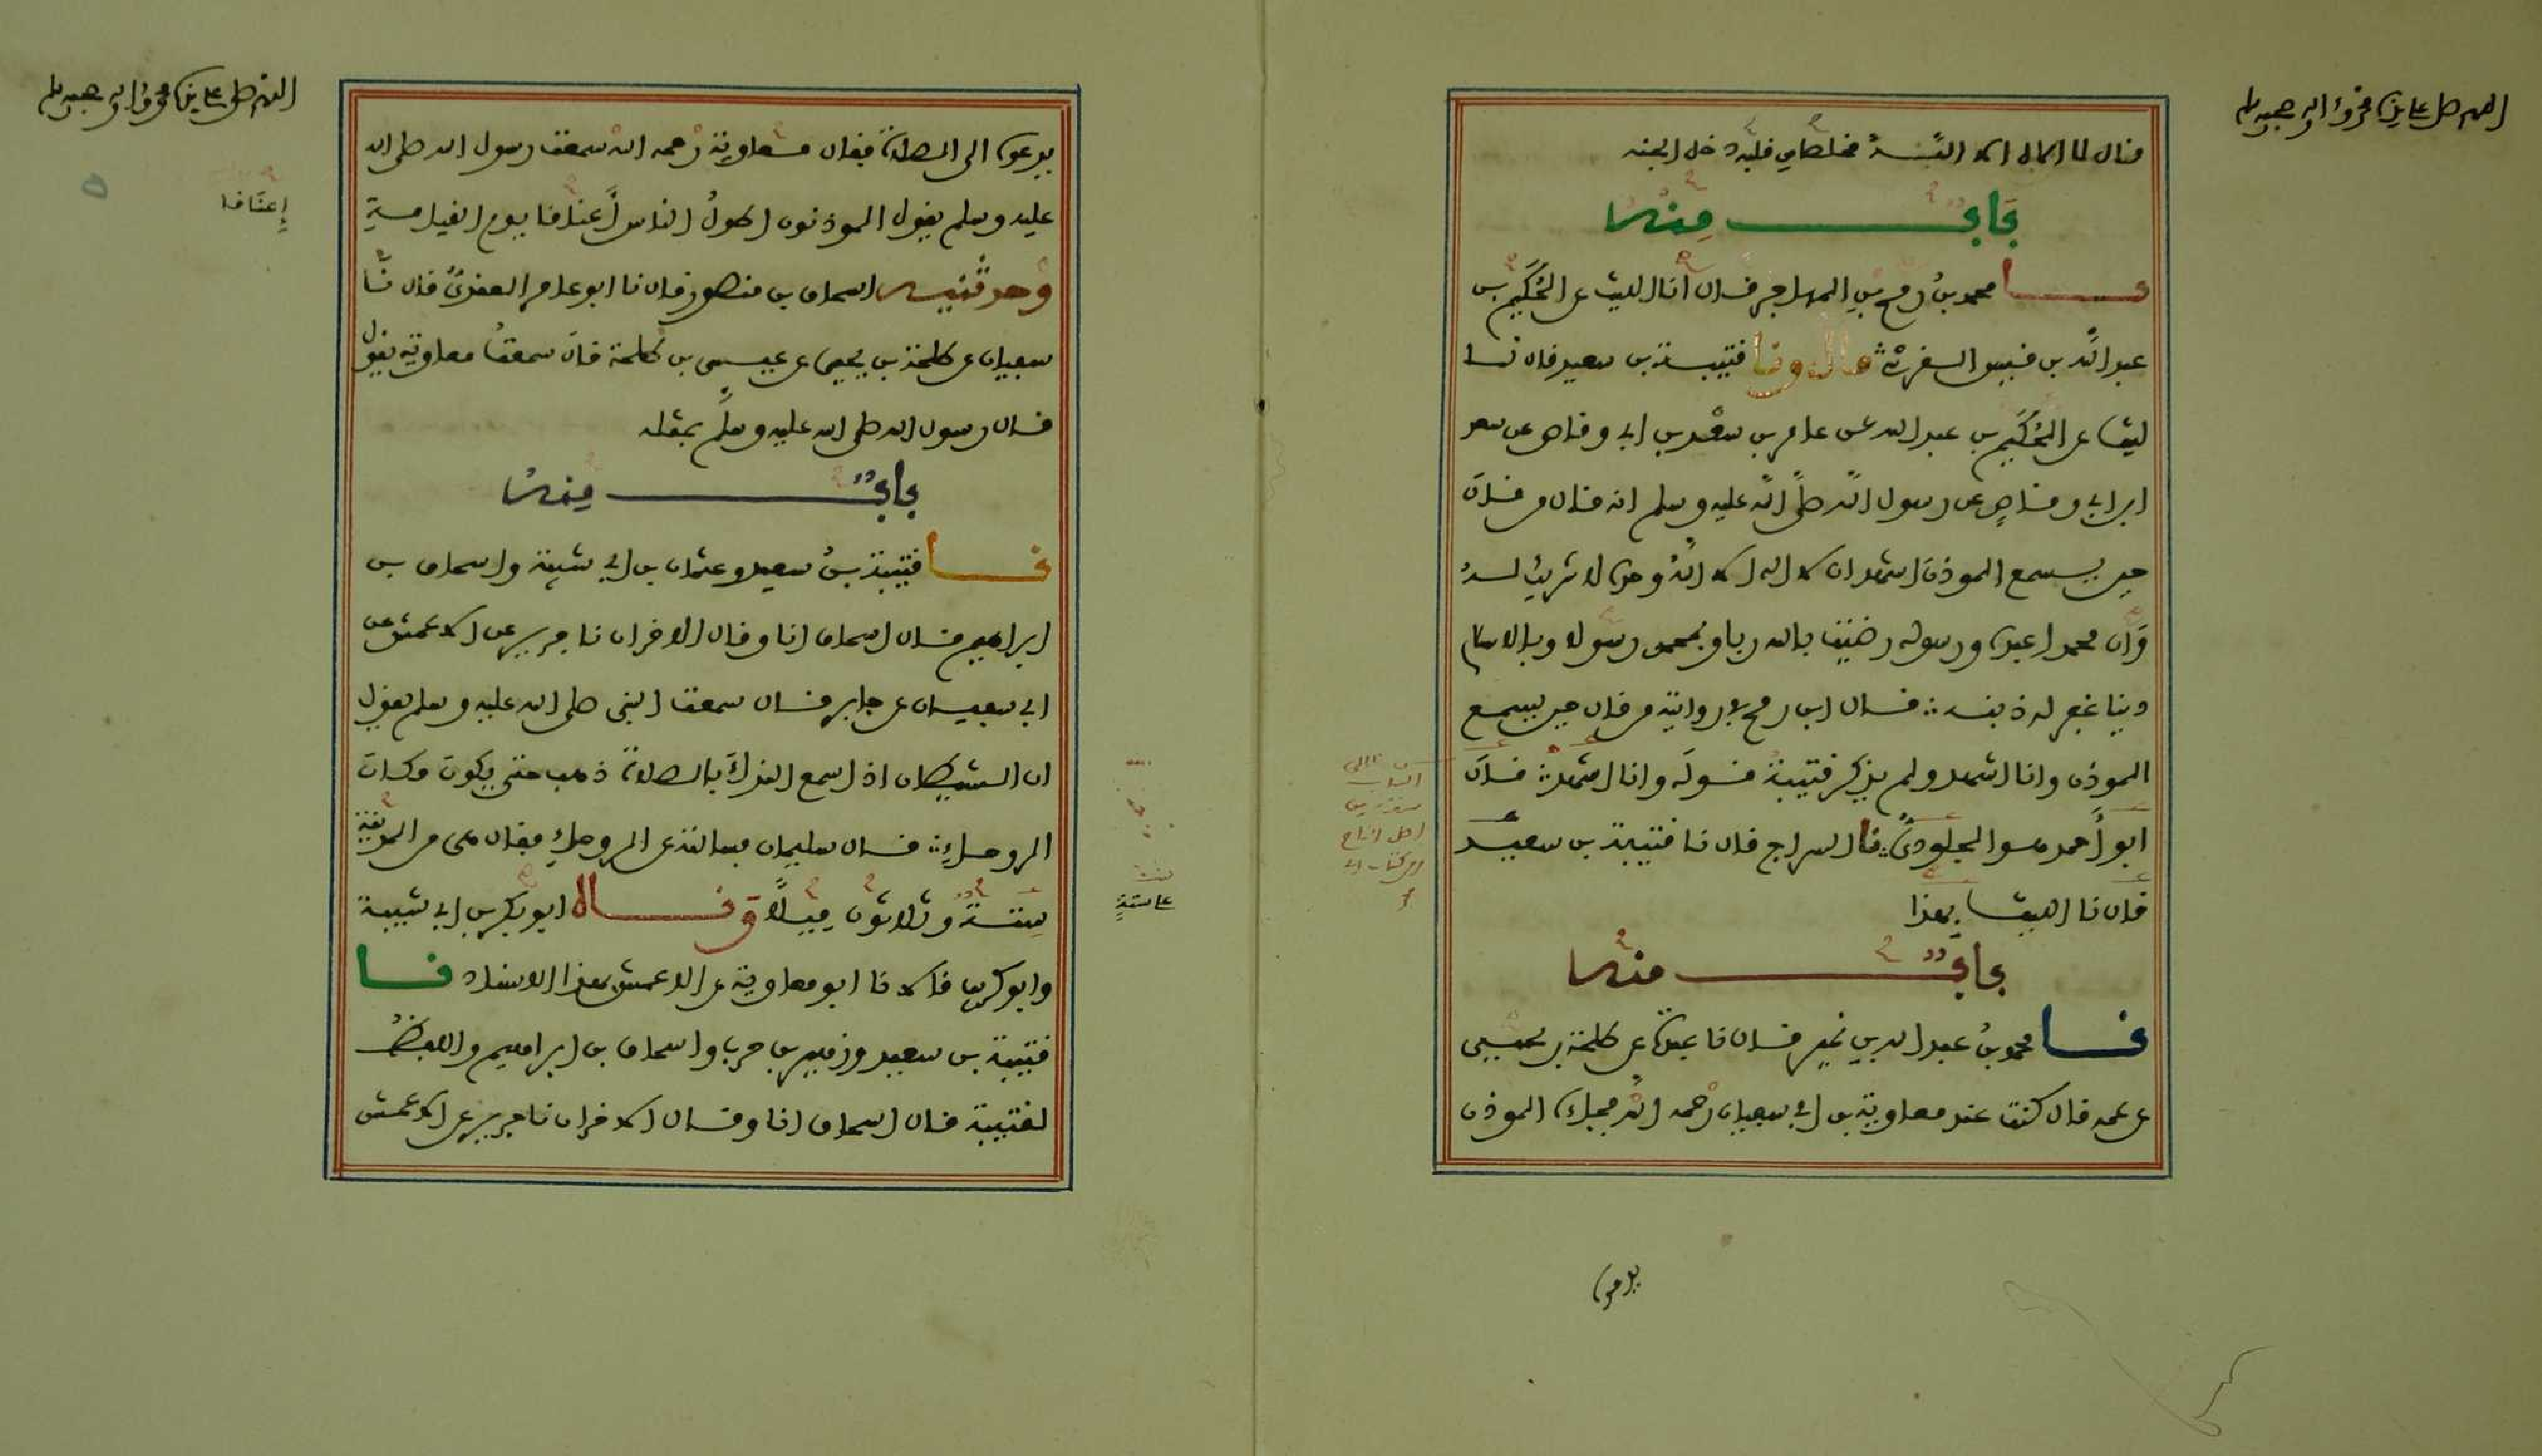 اللهم صل على سيدنا محمد وءاله وصحبه وسلم
قال لا اله الا الله مخلصا من قلبه دخل الجنة
باب منه
نا محمد بن رمح بن المهاجر قال انا الليث عن الحكيم بن
عبد الله بن قيس القرشي قال ونا قتيبة بن سعيد قال نا
ليث عن الحكيم بن عبد الله عن عامر بن سعد بن ابي وقاص عن سعد
ابن ابي وقاص عن رسول الله صلى الله عليه وسلم انه قال من قال
حين يسمع الموذن اشهد ان لا اله الا الله وحده لا شريك له
وان محمدا عبده ورسوله رضيت بالله ربا وبمحمد رسولا وبالاسلام
دينا غفر له ذنبه قال ابن رمح في روايته من قال حين يسمع
الموذن وانا اشهد ولم يذكر قتيبة قوله وانا اشهد قال
ابو أحمد هو الجلودي نا السراج قال نا قتيبة بن سعيد
قال نا الليث بهذا
باب منه
نا محمد بن عبد الله بن نمير قال نا عبدة عن طلحة بن يحيى
عن عمه قال كنت عند معاوية بن ابي سفيان رحمه الله فجاءه الموذن
يدعوه
اللهم صل على سيدنا محمد وءاله وصحبه وسلم
إعناقا
يدعوه الى الصلاة فقال معاوية رحمه الله سمعت رسول الله صلى الله
عليه وسلم يقول الموذنون اطول الناس أعناقا يوم القيامة
وحدثنيه اسحاق بن منصور قال نا ابو عامر العقدي قال نا
سفيان عن طلحة بن يحيى عن عيسى بن طلحة قال سمعت معاوية يقول
قال رسول الله صلى الله عليه وسلم بمثله
باب منه
نا قتيبة بن سعيد وعثمان بن ابي شيبة واسحاق بن
ابراهيم قال اسحاق انا وقال الاخران نا جرير عن الاعمش عن
ابي سفيان عن جابر قال سمعت النبي صلى الله عليه وسلم يقول
ان الشيطان اذا سمع النداء بالصلاة ذهب حتى يكون مكان
الروحاء قال سليمان فسالته عن الروحاء فقال هي من المدينة
ستة وثلاثون ميلا وقال ابو بكر بن ابي شيبة
وابو كريب قالا نا ابو معاوية عن الاعمش بهذا الاسناد نا
قتيبة بن سعيد وزهير بن حرب واسحاق بن ابراهيم واللفظ
لقتيبة قال اسحاق انا وقال الاخران نا جرير عن الاعمش